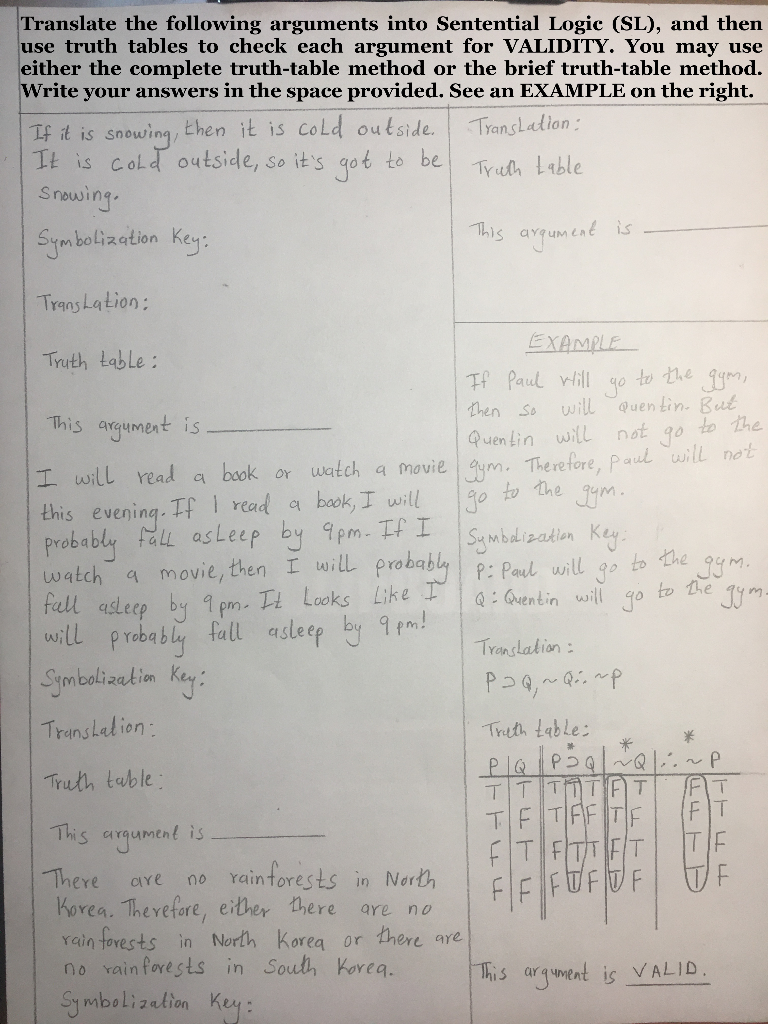 Translate the following arguments into Sentential Logic (SL), and then
use truth tables to check each argument for VALIDITY. You may use
either the complete truth-table method or the brief truth-table method.
Write your answers in the space provided. See an EXAMPLE on the right.
If it is snowing, then it is cold outside.
It is cold outside, so it's got to be
snowing.
Symbolization Key:
Translation:
Truth table:
This argument is ________
I will read a book or watch a movie
this evening. If I read a book, I will
probably fall asleep by 9pm. If I
watch a movie, then I will probably
fall asleep by 9pm. It Looks Like I
will probably fall asleep by 9pm!
Symbolization Key:
Translation:
Truth table:
This argument is ________
There are no rainforests in North
Korea. Therefore, either there are no
rainforests in North Korea or there are
no rainforests in South Korea.
Symbolization Key:
Translation:
Truth table
This argument is ________
EXAMPLE
If Paul will go to the gym,
then so will Quentin. But
Quentin will not go to the
gym. Therefore, Paul will not
go to the gym.
Symbolization Key:
P: Paul will go to the gym.
Q: Quentin will go to the gym.
Translation:
P⊃Q, ~Q∴ ~P
Truth table:
* * *
P | Q || P⊃Q | ~Q | ∴ ~P
T | T || T T T | F T | F T
T | F || T F F | T F | F T
F | T || F T T | F T | T F
F | F || F T F | T F | T F
This argument is VALID.